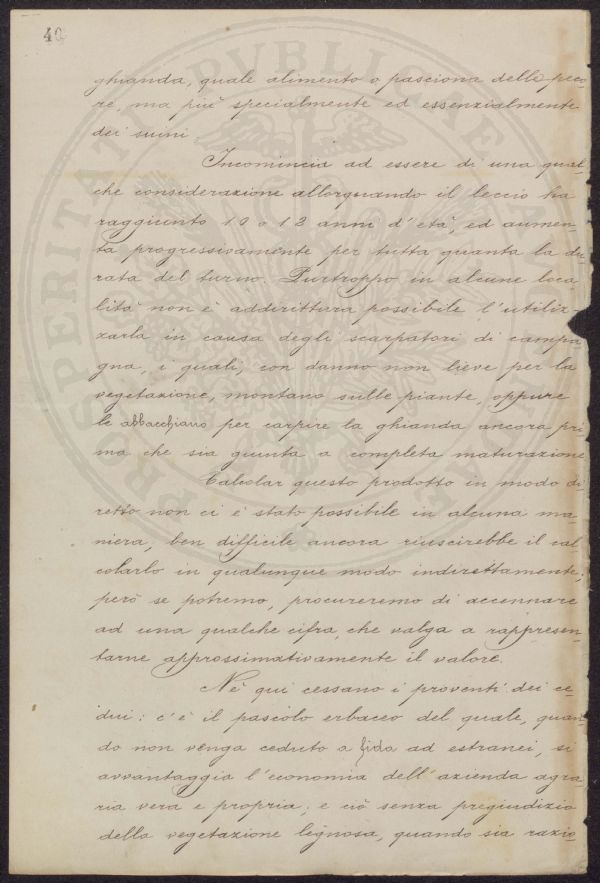 40
ghianda, quale alimento o pasciona delle peco-
re, ma più specialmente ed essenzialmente
dei suini.
Incomincia ad essere di una qual-
che considerazione allorquando il leccio ha
raggiunto 10 o 12 anni d'età, ed aumen-
ta progressivamente per tutta quanta la du-
rata del turno. Purtroppo in alcune loca-
lità non è addirittura possibile l'utiliz-
zarla in causa degli scarpatori di campa-
gna, i quali, con danno non lieve per la
vegetazione, montano sulle piante, oppure
le abbacchiano per carpire la ghianda ancora pri-
ma che sia giunta a completa maturazione.
Calcolar questo prodotto in modo di-
retto non ci è stato possibile in alcuna ma-
niera, ben difficile ancora riuscirebbe il cal-
colarlo in qualunque modo indirettamente,
però se potremo, procureremo di accennare
ad una qualche cifra, che valga a rappresen-
tarne approssimativamente il valore.
Nè qui cessano i proventi dei ce-
dui: c'è il pascolo erbaceo del quale, quan-
do non venga ceduto a fida ad estranei, si
avvantaggia l'economia dell'azienda agra-
ria vera e propria, e ciò senza pregiudizio
della vegetazione legnosa, quando sia razio-
PROSPERITATI PVBLICAE AVGENDAE